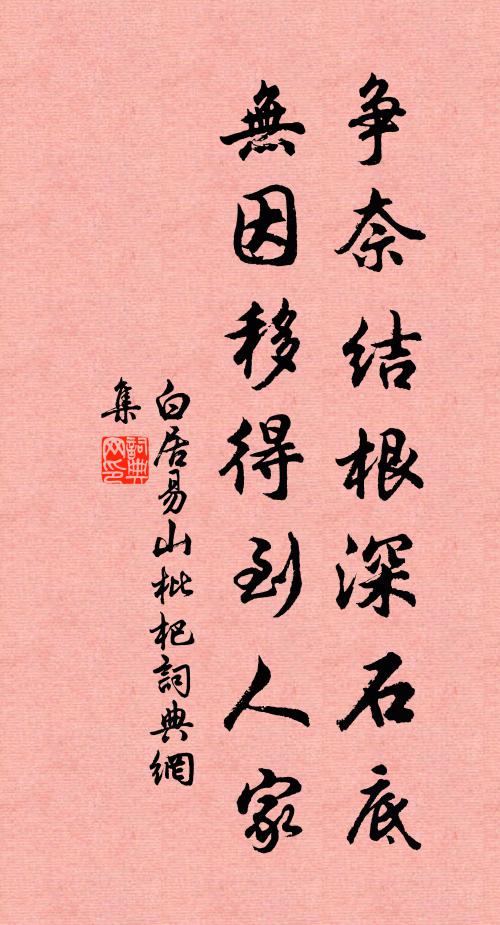 争奈結根深石底
無因移得到人家
白居易山枇杷詞典網
集
詞典網印